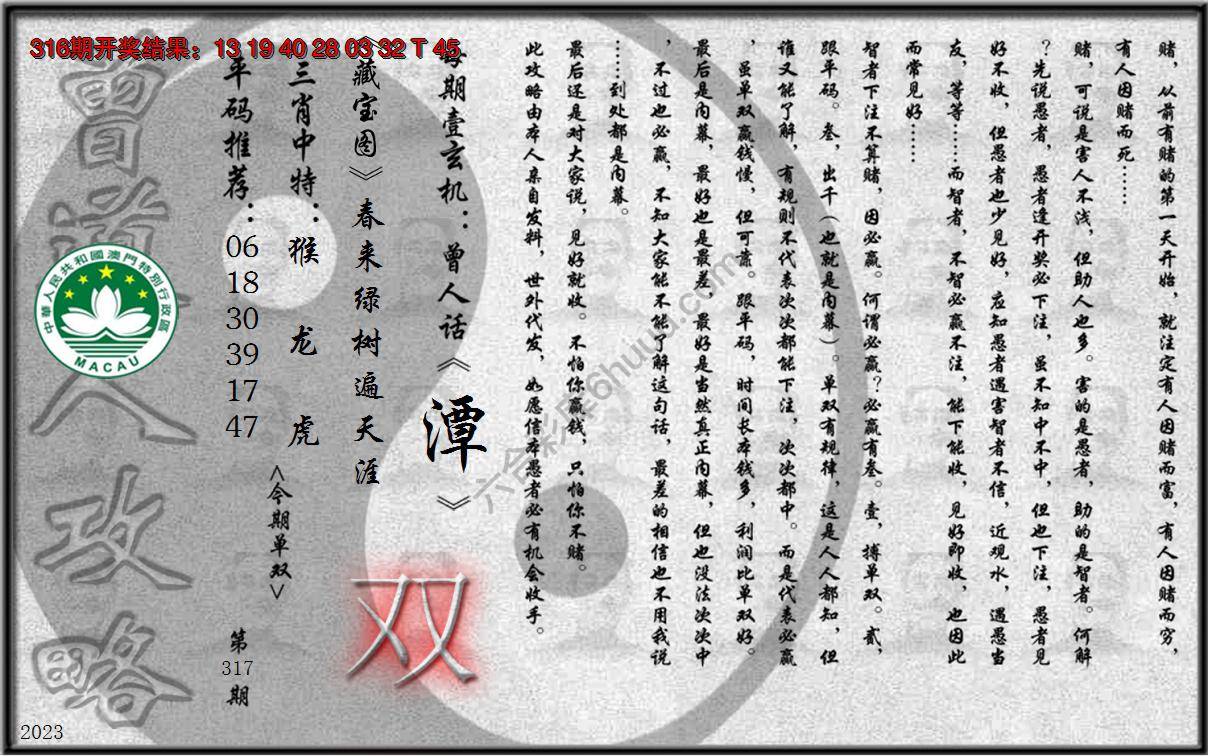 316期开奖结果：13 19 40 28 03 32 T 45
赌，从前有赌的第一天开始，就注定有人因赌而富，有人因赌而穷，
有人因赌而死……
赌，可说是害人不浅，但助人也多。害的是愚者，助的是智者。何解
？先说愚者，愚者逢开奖必下注，虽不知中不中，但也下注，愚者见
好不收，但愚者也少见好，应知愚者遇害智者不信，近观水，遇愚当
友，等等……而智者，不智必赢不注，能下能收，见好即收，也因此
而常见好……
智者下注不算赌，因必赢。何谓必赢？必赢有叁。壹，搏单双。贰，
跟平码。叁，出千（也就是内幕）。单双有规律，这是人人都知，但
谁又能了解，有规则不代表次次都能下注，次次都中。而是代表必赢
，虽单双赢钱慢，但可靠。跟平码，时间长本钱多，利润比单双好。
最后是内幕，最好也是最差，最好是当然真正内幕，但也没法次次中
，不过也必赢，不知大家能不能了解这句话，最差的相信也不用我说
……到处都是内幕。
最后还是对大家说，见好就收。不怕你赢钱，只怕你不赌。
此攻略由本人亲自发料，世外代发，如愿信本愚者必有机会收手。
每期壹玄机：曾人话《潭》
《藏宝图》春来绿树遍天涯
双
三肖中特：猴 龙 虎
<今期单双>
平码推荐：
06
18
30
39
17
47
第
317
期
曾道人攻略
中華人民共和國澳門特別行政區
MACAU
2023